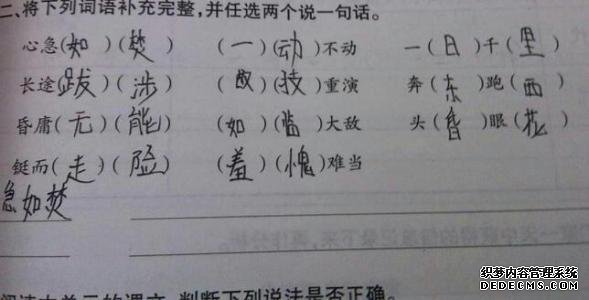 二、将下列词语补充完整,并任选两个说一句话。
心急(如)(焚) (一)(动)不动 一(日)千(里)
长途(跋)(涉) (故)(技)重演 奔(东)跑(西)
昏庸(无)(能) (如)(临)大敌 头(昏)眼(花)
铤而(走)(险) (羞)(愧)难当
急如焚
阅读本单元的课文,判断下列说法是否正确。
织梦内容管理系统
DEDECMS.COM